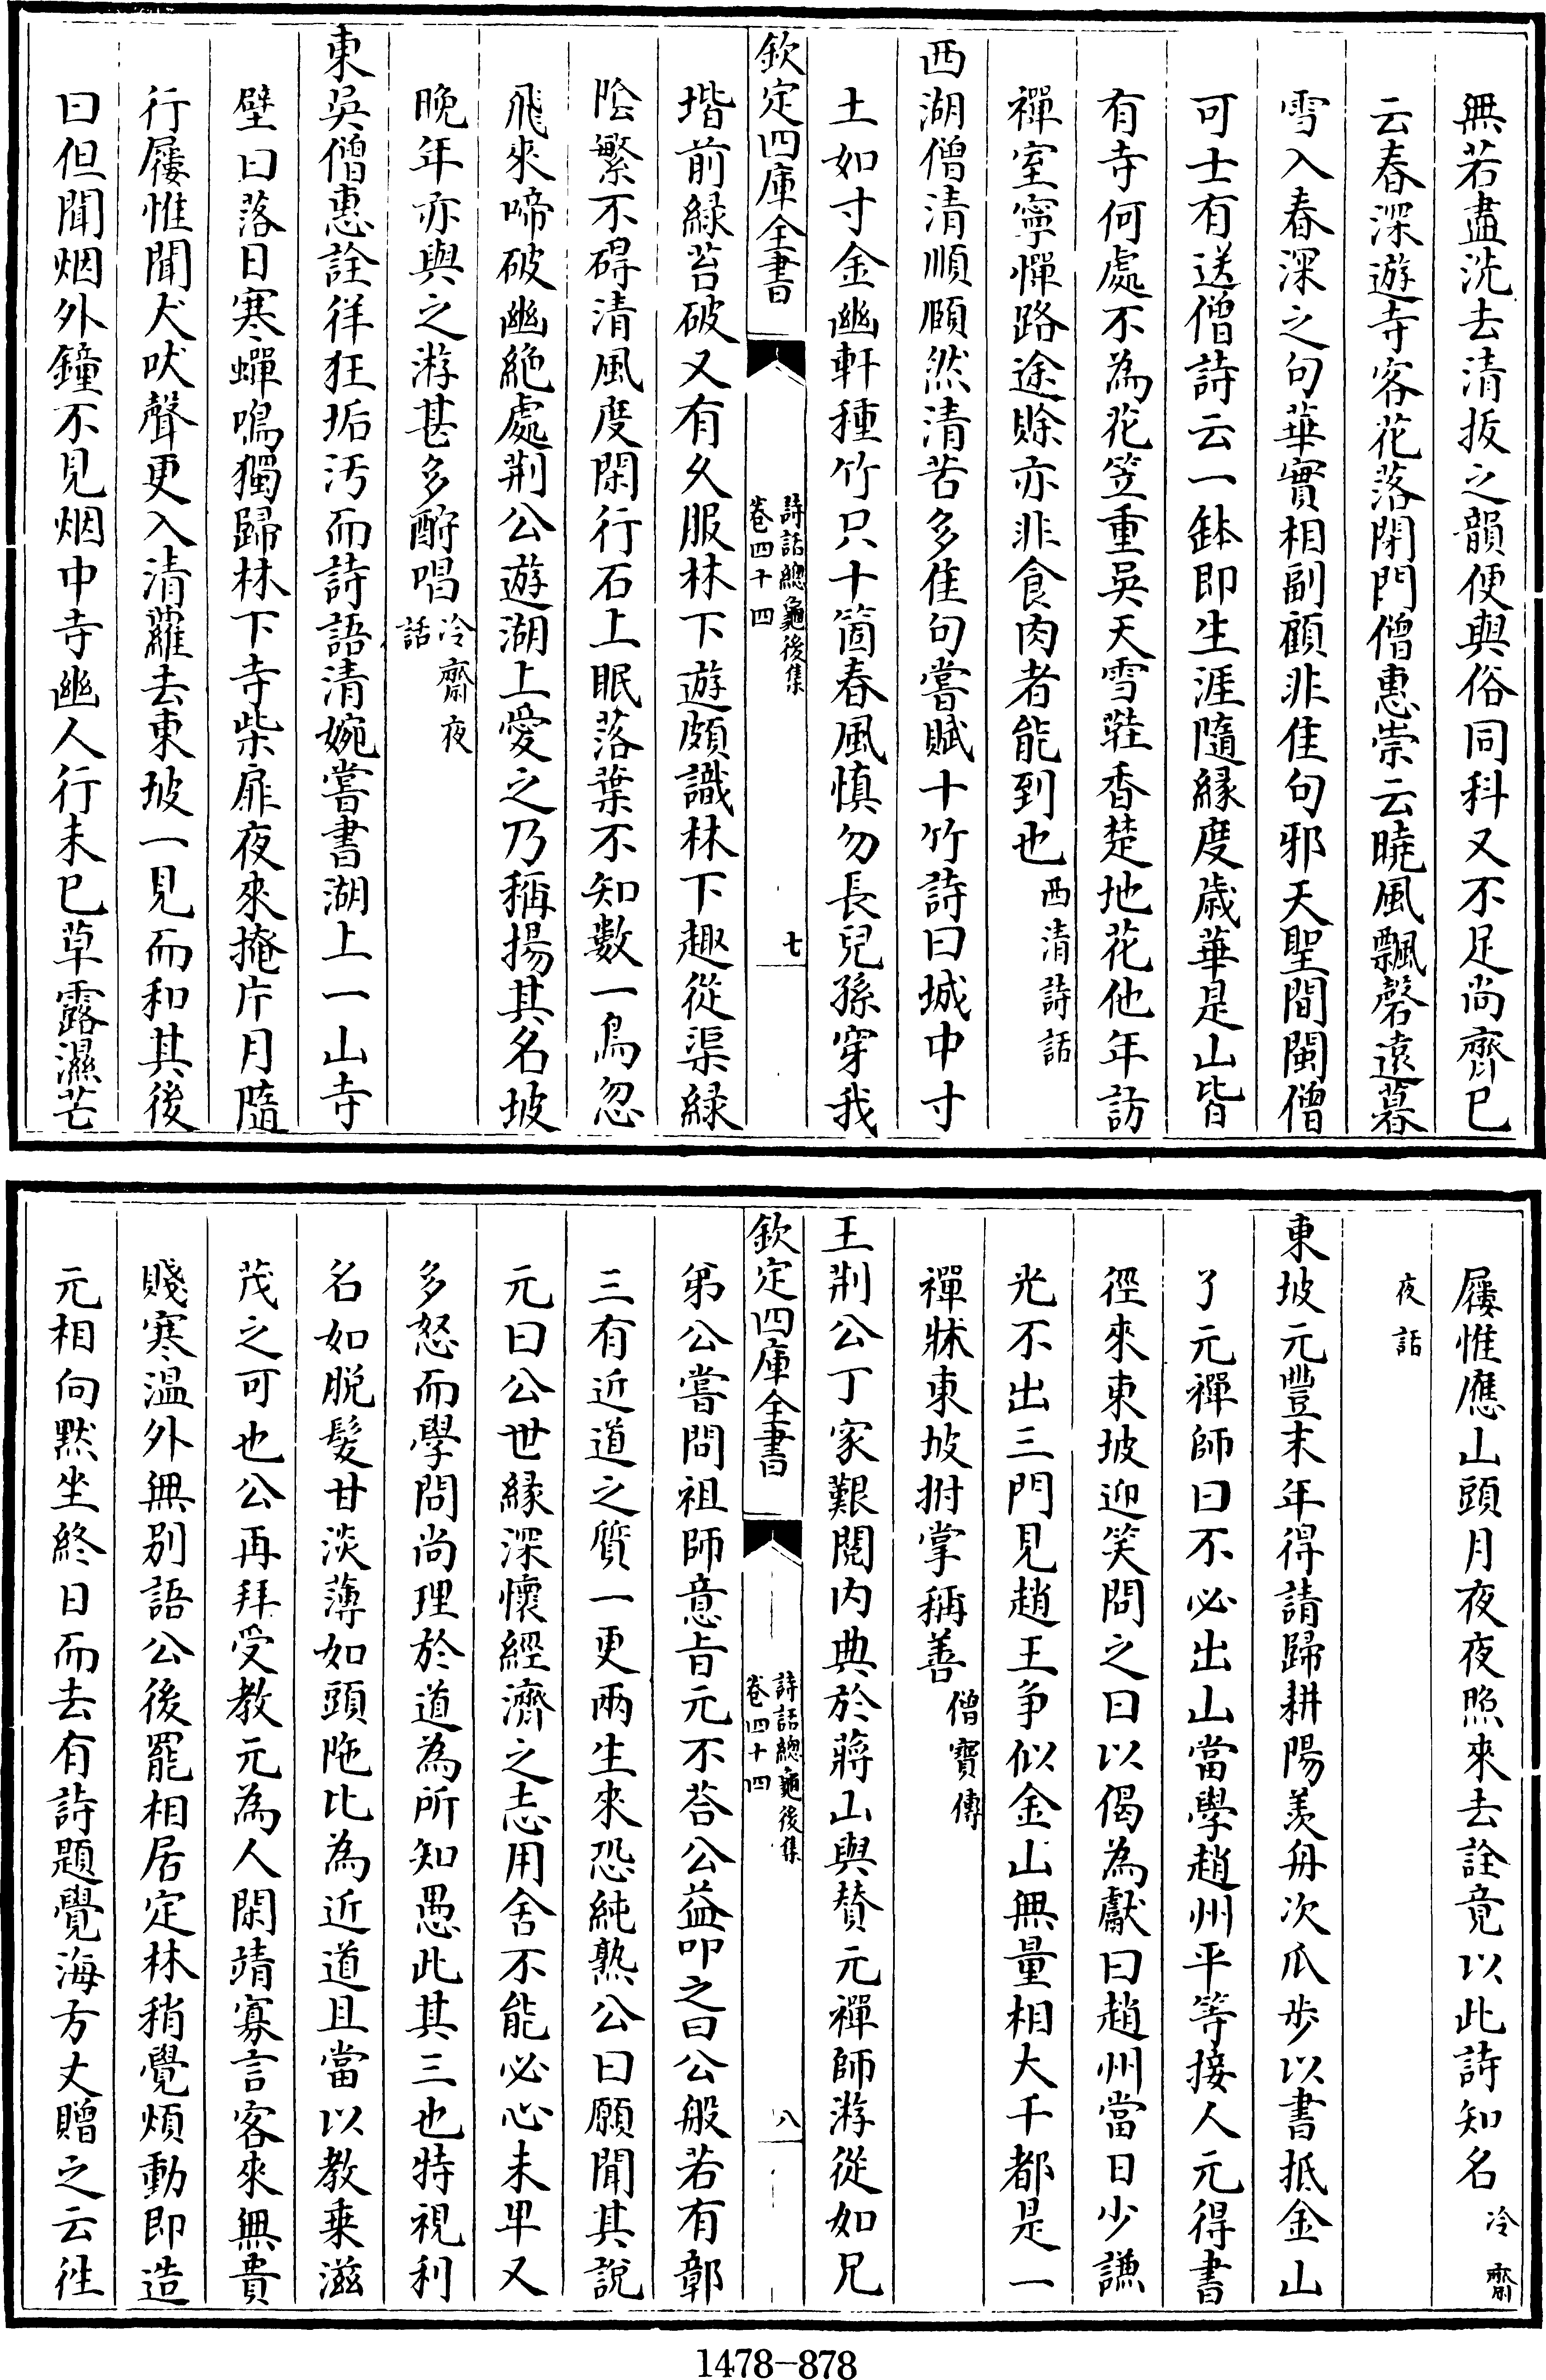 無若盡洗去清拔之韻便與俗同科又不足尚齊已
云春深遊寺客花落閉門僧惠崇云曉風飄磬逺暮
雪入春深之句華實相副顧非佳句邪天聖間閩僧
可士有送僧詩云一鉢即生涯隨縁度歳華是山皆
有寺何處不為花笠重吳天雪鞋香楚地花他年訪
禪室寧憚路途賒亦非食肉者能到也西清詩話
西湖僧清順頤然清苦多佳句嘗賦十竹詩曰城中寸
土如寸金幽軒種竹只十箇春風慎勿長兒孫穿我
欽定四庫全書
詩話總龜後集
卷四十四
七
堦前緑苔破又有乆服林下遊頗識林下趣從渠緑
陰繁不碍清風度閑行石上眠落葉不知數一鳥忽
飛來啼破幽絶處荆公遊湖上愛之乃稱揚其名坡
晚年亦與之游甚多酧唱冷齋夜
話
東吳僧惠詮徉狂垢汚而詩語清婉嘗書湖上一山寺
壁曰落日寒蟬鳴獨歸林下寺柴扉夜來掩片月隨
行屨惟聞犬吠聲更入清蘿去東坡一見而和其後
曰但聞烟外鐘不見烟中寺幽人行未已草露濕芒
屨惟應山頭月夜夜照來去詮竟以此詩知名冷齋
夜話
東坡元豐末年得請歸耕陽羨舟次瓜歩以書抵金山
了元禪師曰不必出山當學趙州平等接人元得書
徑來東坡迎笑問之曰以偈為獻曰趙州當日少謙
光不出三門見趙王争似金山無量相大千都是一
禪牀東坡拊掌稱善僧寶傳
王荆公丁家艱閲内典於蔣山與賛元禪師游從如兄
欽定四庫全書
詩話總龜後集
卷四十四
八
弟公嘗問祖師意㫖元不荅公益叩之曰公般若有鄣
三有近道之質一更兩生來恐純熟公曰願聞其說
元曰公世縁深懷經濟之志用舍不能必心未平又
多怒而學問尚理於道為所知愚此其三也特視利
名如脱髪甘淡薄如頭陁比為近道且當以教乘滋
茂之可也公再拜受教元為人閑靖寡言客來無貴
賤寒溫外無别語公後罷相居定林稍覺煩動即造
元相向黙坐終日而去有詩題覺海方丈贈之云徃
1478-878